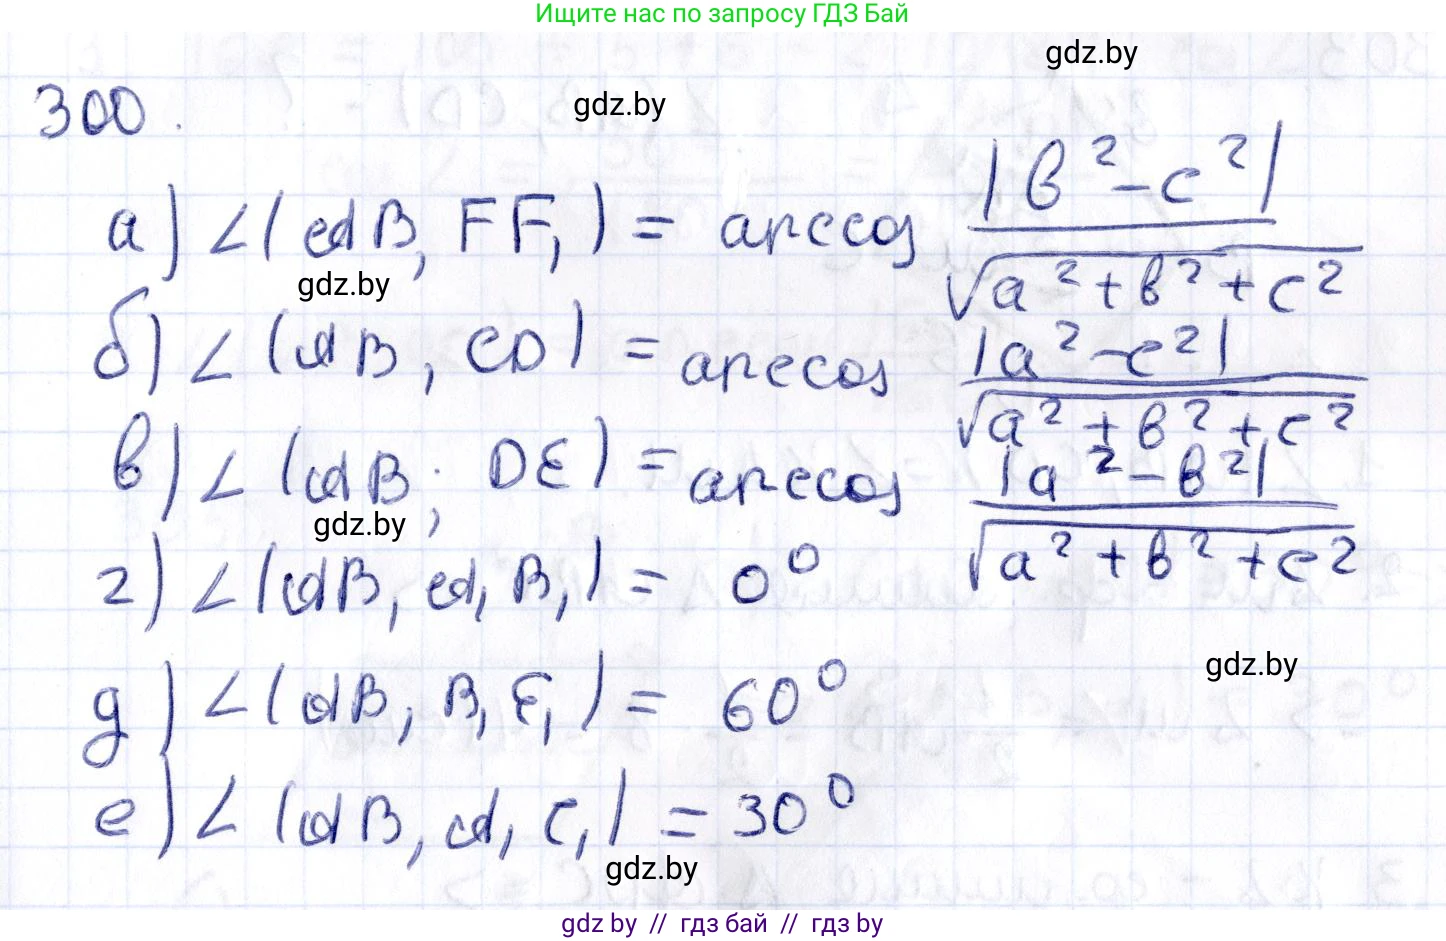 Ищите нас по запросу ГДЗ Бай
gdz.by
300.
gdz.by
а) ∠(AB, FF₁) = arccos |b² - c²| / √(a² + b² + c²)
gdz.by
б) ∠(AB, CD) = arccos |a² - c²| / √(a² + b² + c²)
в) ∠(AB; DE) = arccos |a² - b²| / √(a² + b² + c²)
gdz.by
г) ∠(AB, A₁B₁) = 0°
gdz.by
д) ∠(AB, B₁E₁) = 60°
е) ∠(AB, A₁C₁) = 30°
gdz.by
gdz by // гдз бай // гдз by